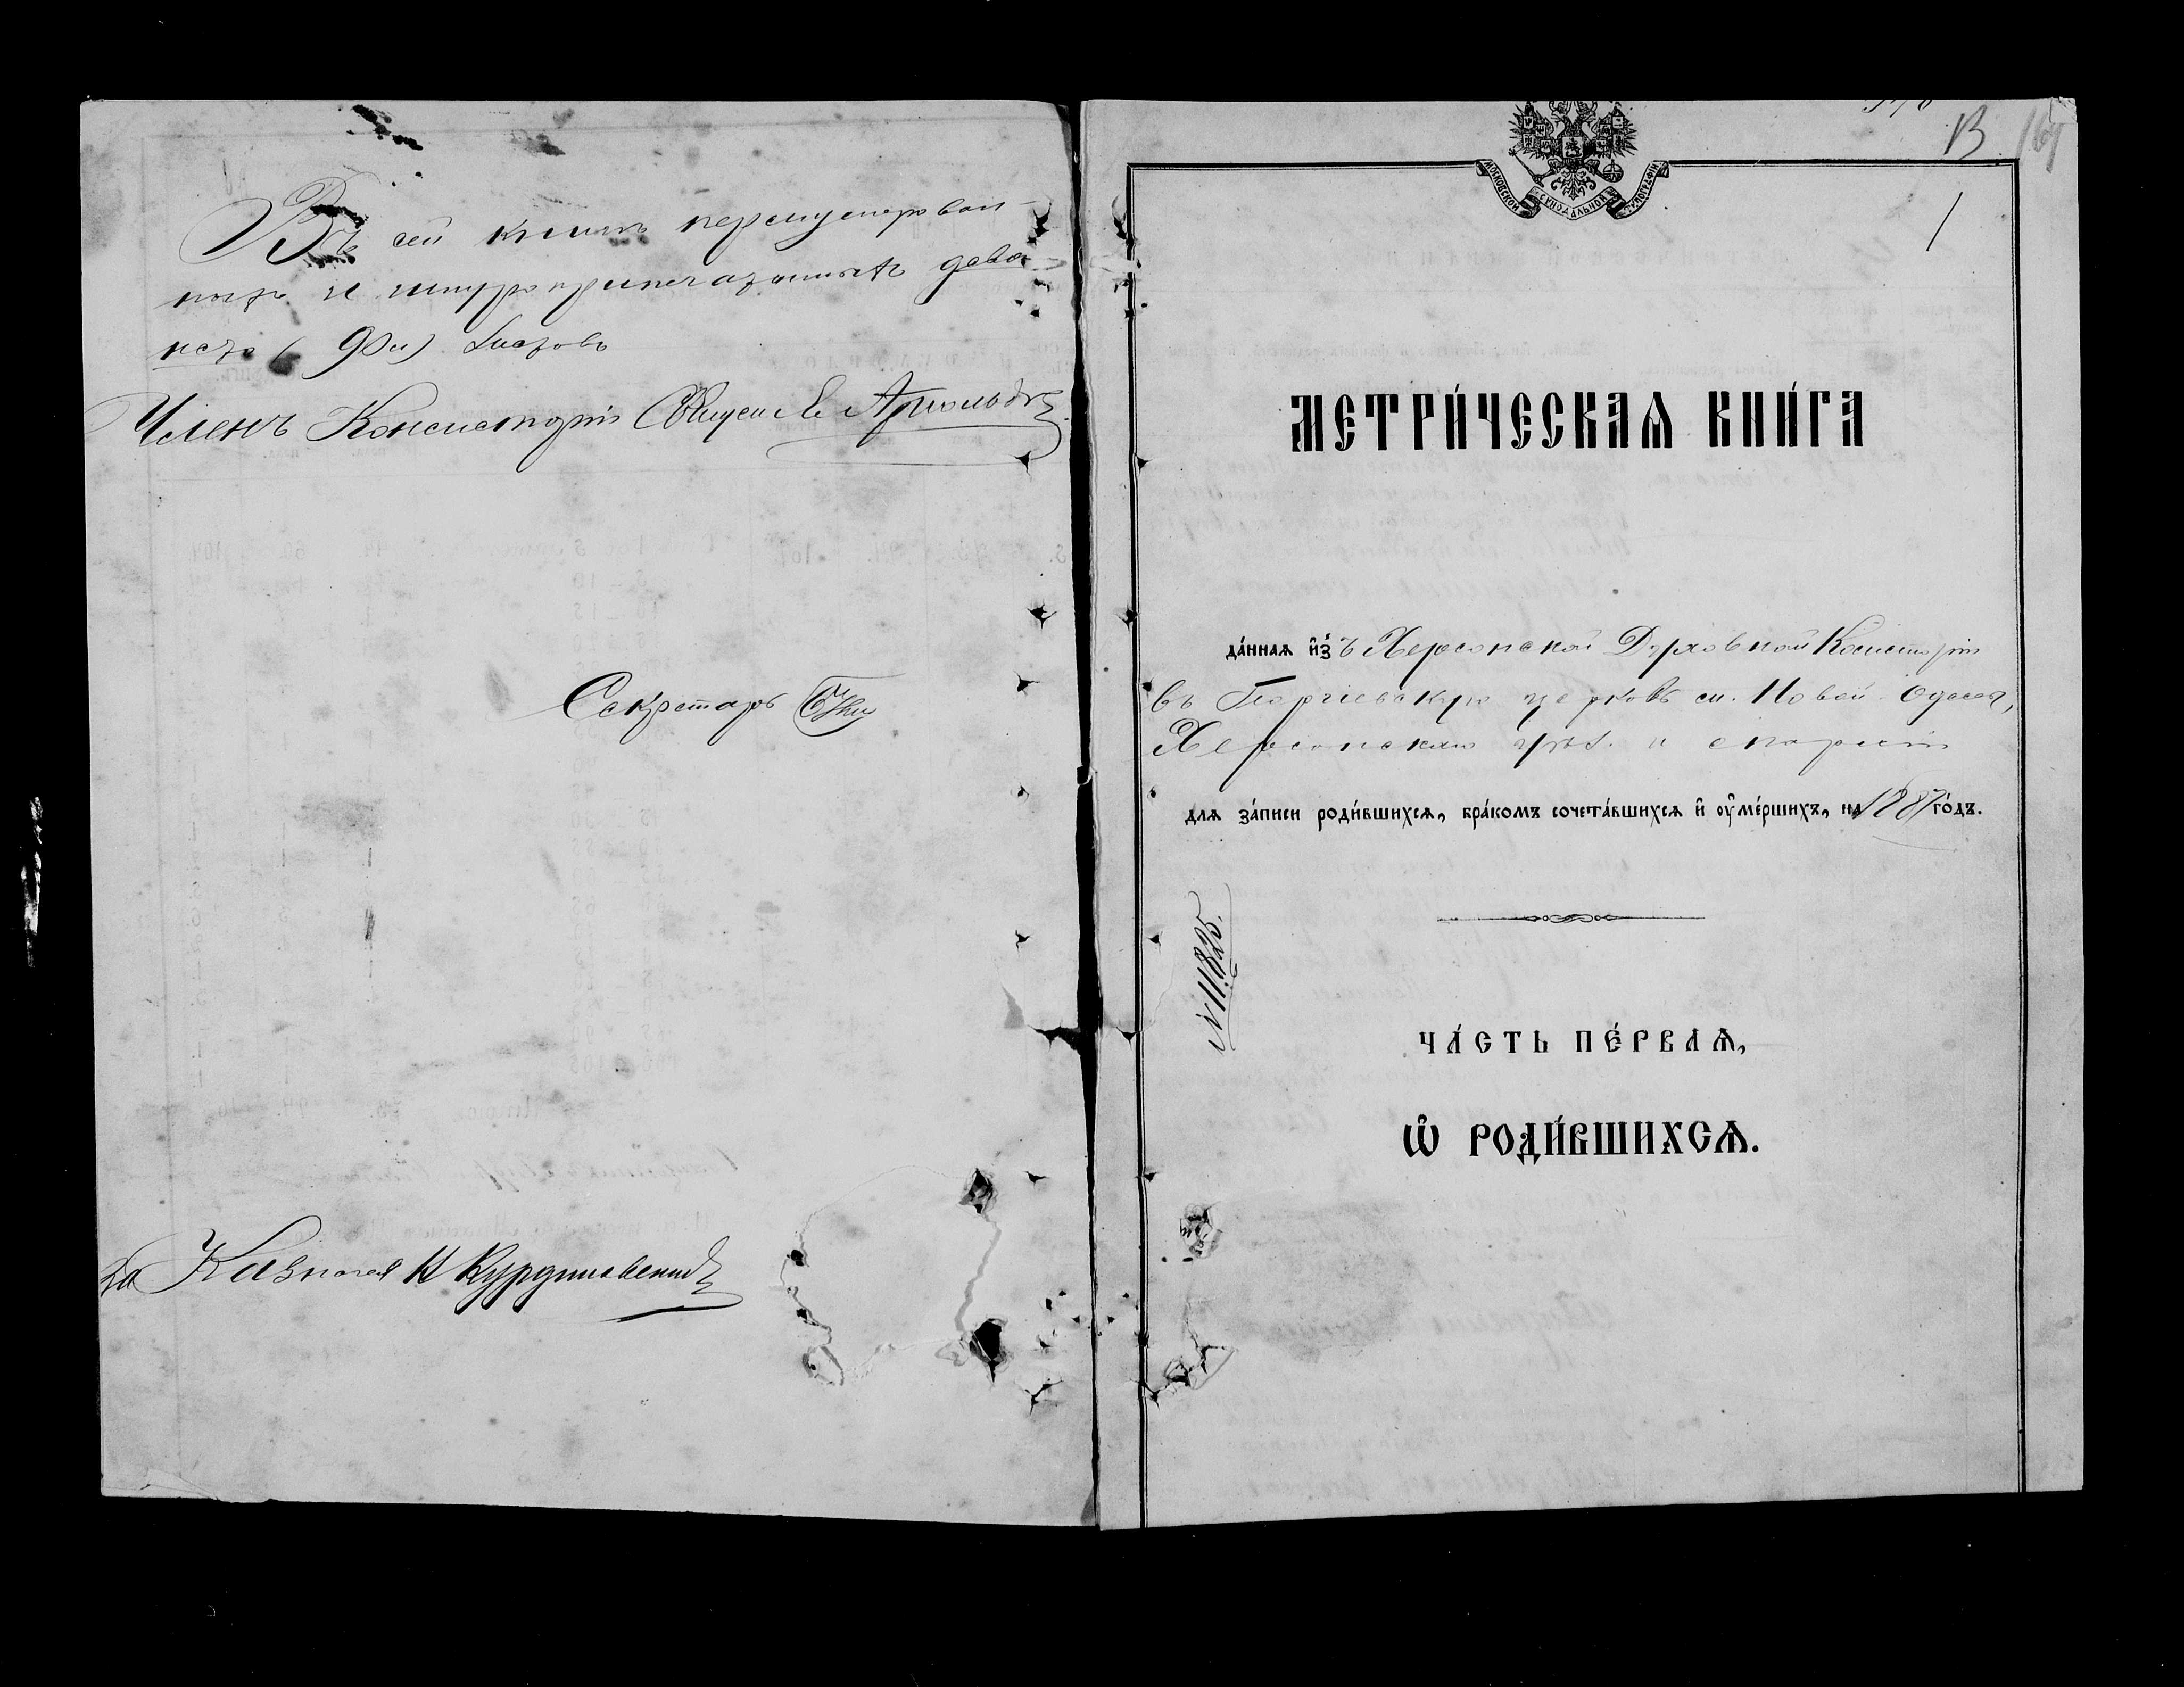 Въ сей книгѣ перенумерован-
ныхъ и шнуроприпечатанныхъ девя
носто (90 и) листовъ
Членъ Консисторіи Священ. Е Арнольдъ
Секретарь
За Казначея Н Курдиновскій
В
1
МОСКОВСКОЙ СУНОДАЛЬНОЙ ТУПОГРАФІИ
МЕТРИ́ЧЕСКАѦ КНИ́ГА
да́ннаѧ и҆зъ Херсонской Духовной Консисторіи
въ Георгіевскую церковь м. Новой Одессы,
Херсонскаго уѣз. и епархіи
длѧ за́писи роди́вшихсѧ, бра́комъ сочета́вшихсѧ и҆ ᲂу҆ме́ршихъ, на 1887 го́дъ.
№ 11825.
ЧА́СТЬ ПЕ́РВАѦ,
Ѽ РОДИ́ВШИХСѦ.